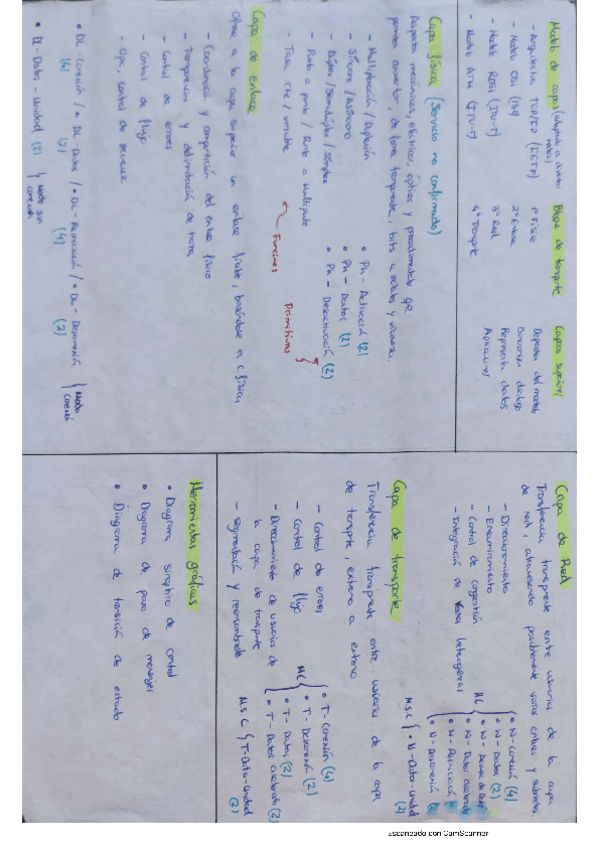 Modelo de capas (adaptado a distintas redes)
- Arquitectura TCP/IP (IETF)
- Modelo OSI (ISO)
- Modelo RDSI (ITU-T)
- Modelo ATM (ITU-T)
Bloque de transporte
1º Físico
2º Enlace
3º Red
4º Transporte
Capas superiores
Dependen del modelo
Aplicaciones
Capa física (Servicio no confirmado)
Aspectos mecánicos, eléctricos, ópticos y procedimentales que
- Multiplexación / Difusión
- Síncrono / Asíncrono
- Dúplex / Semidúplex / Símplex
- Punto a punto / Punto a multipunto
- Tasa cte / variable
Funciones
Primitivas
• Ph - Activación (2)
• Ph - Datos (2)
• Ph - Desactivación (2)
Capa de enlace
Ofrece a la capa superior un enlace fiable, basándose a c. física
- Coordinación y compartición del enlace físico
- Transparencia y delimitación de trama
- Control de errores
- Control de flujo
- Opc, control de secuencia
• DL - Conexión / • DL - Datos / • DL - Reiniciación / • DL - Desconexión
(4) (2) (4) (2)
Modo conexión
• DL - Datos - Unidad (2) Modo sin conexión
Capa de Red
Transferencia transparente entre usuarios de la capa
de red, atravesando posiblemente varios enlaces y subredes.
- Direccionamiento
- Encaminamiento
- Control de congestión
- Integración de redes heterogéneas
MC
• N - Conexión (4)
• N - Datos (2)
• N - Datos acelerados
• N - Reiniciación
• N - Desconexión
MSC { • N - Datos - Unidad (2)
Capa de transporte
Transferencia transparente entre usuarios de la capa
de transporte, extremo a extremo
- Control de errores
- Control de flujo
- Direccionamiento de usuarios de
la capa de transporte
- Segmentación y reensamblado
MC
• T - Conexión (4)
• T - Desconexión (2)
• T - Datos (2)
• T - Datos acelerados (2)
MSC { T - Datos - Unidad (2)
Herramientas gráficas
• Diagrama simplificado de control
• Diagrama de paso de mensajes
• Diagrama de transición de estado
Escaneado con CamScanner